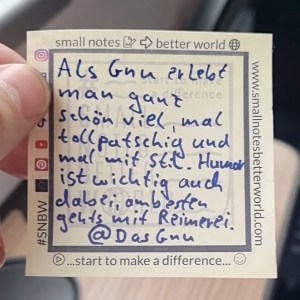 small notes ⇨ better world
Als Gnu erlebt
man ganz
schön viel, mal
tollpatschig und
mal mit Stil. Humor
ist wichtig auch
dabei, am besten
gehts mit Reimerei.
@DasGnu
...start to make a difference...
#SNBW
www.smallnotesbetterworld.com